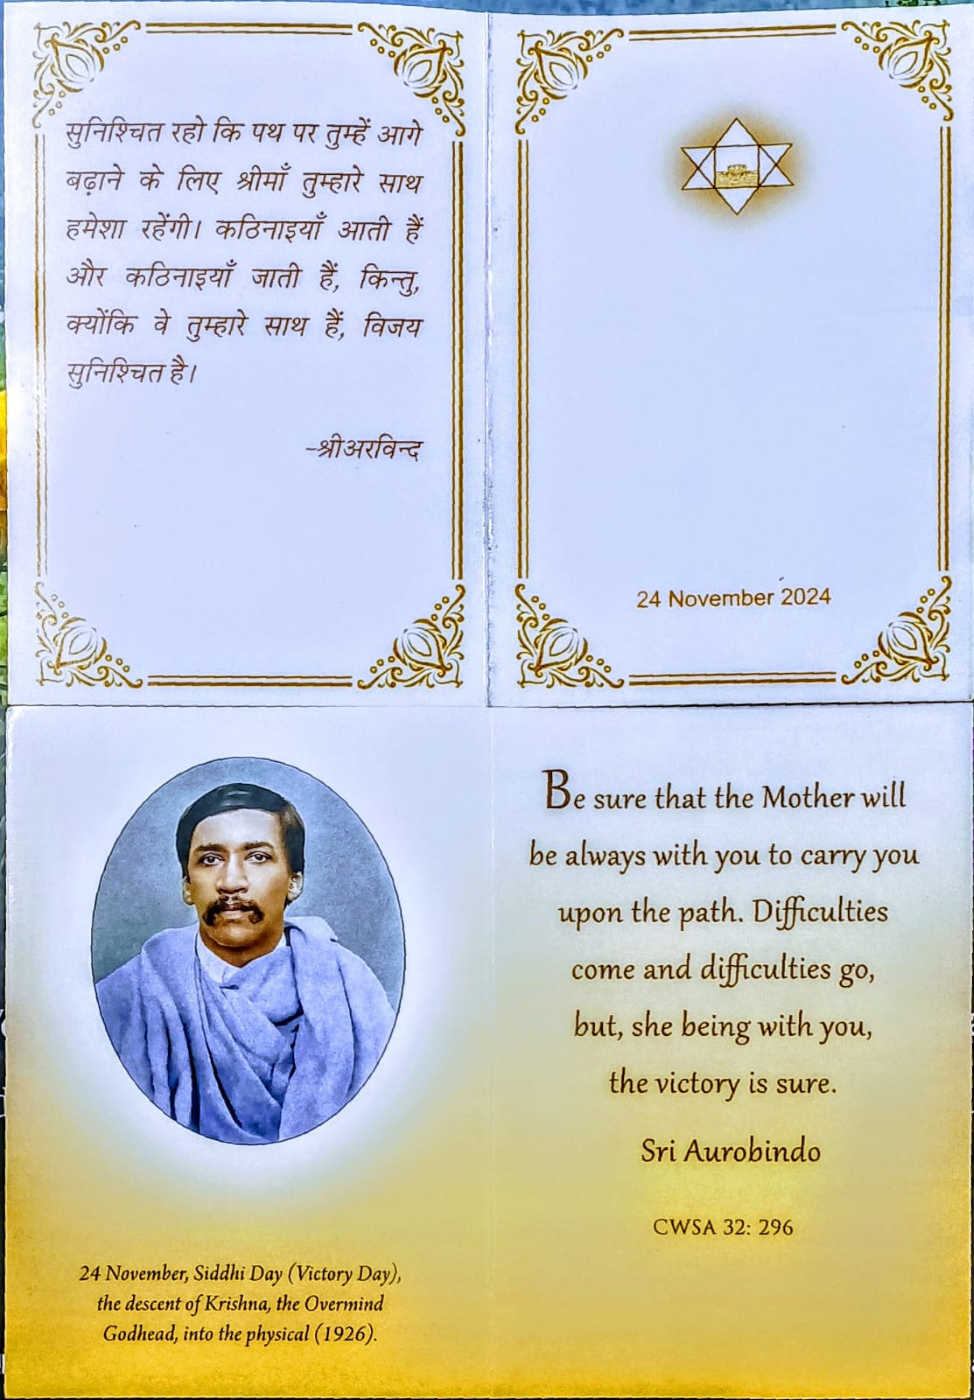 सुनिश्चित रहो कि पथ पर तुम्हें आगे
बढ़ाने के लिए श्रीमाँ तुम्हारे साथ
हमेशा रहेंगी। कठिनाइयाँ आती हैं
और कठिनाइयाँ जाती हैं, किन्तु,
क्योंकि वे तुम्हारे साथ हैं, विजय
सुनिश्चित है।
-श्रीअरविन्द
24 November 2024
24 November, Siddhi Day (Victory Day),
the descent of Krishna, the Overmind
Godhead, into the physical (1926).
Be sure that the Mother will
be always with you to carry you
upon the path. Difficulties
come and difficulties go,
but, she being with you,
the victory is sure.
Sri Aurobindo
CWSA 32: 296